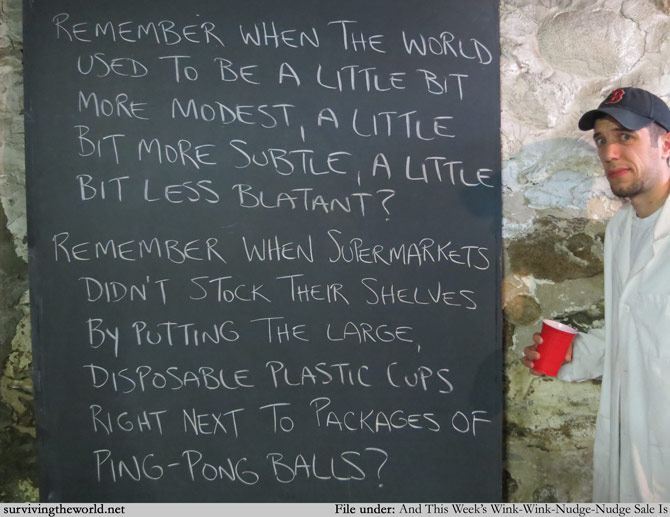 REMEMBER WHEN THE WORLD
USED TO BE A LITTLE BIT
MORE MODEST, A LITTLE
BIT MORE SUBTLE, A LITTLE
BIT LESS BLATANT?
REMEMBER WHEN SUPERMARKETS
DIDN'T STOCK THEIR SHELVES
BY PUTTING THE LARGE,
DISPOSABLE PLASTIC CUPS
RIGHT NEXT TO PACKAGES OF
PING-PONG BALLS?
B
survivingtheworld.net
File under: And This Week's Wink-Wink-Nudge-Nudge Sale Is